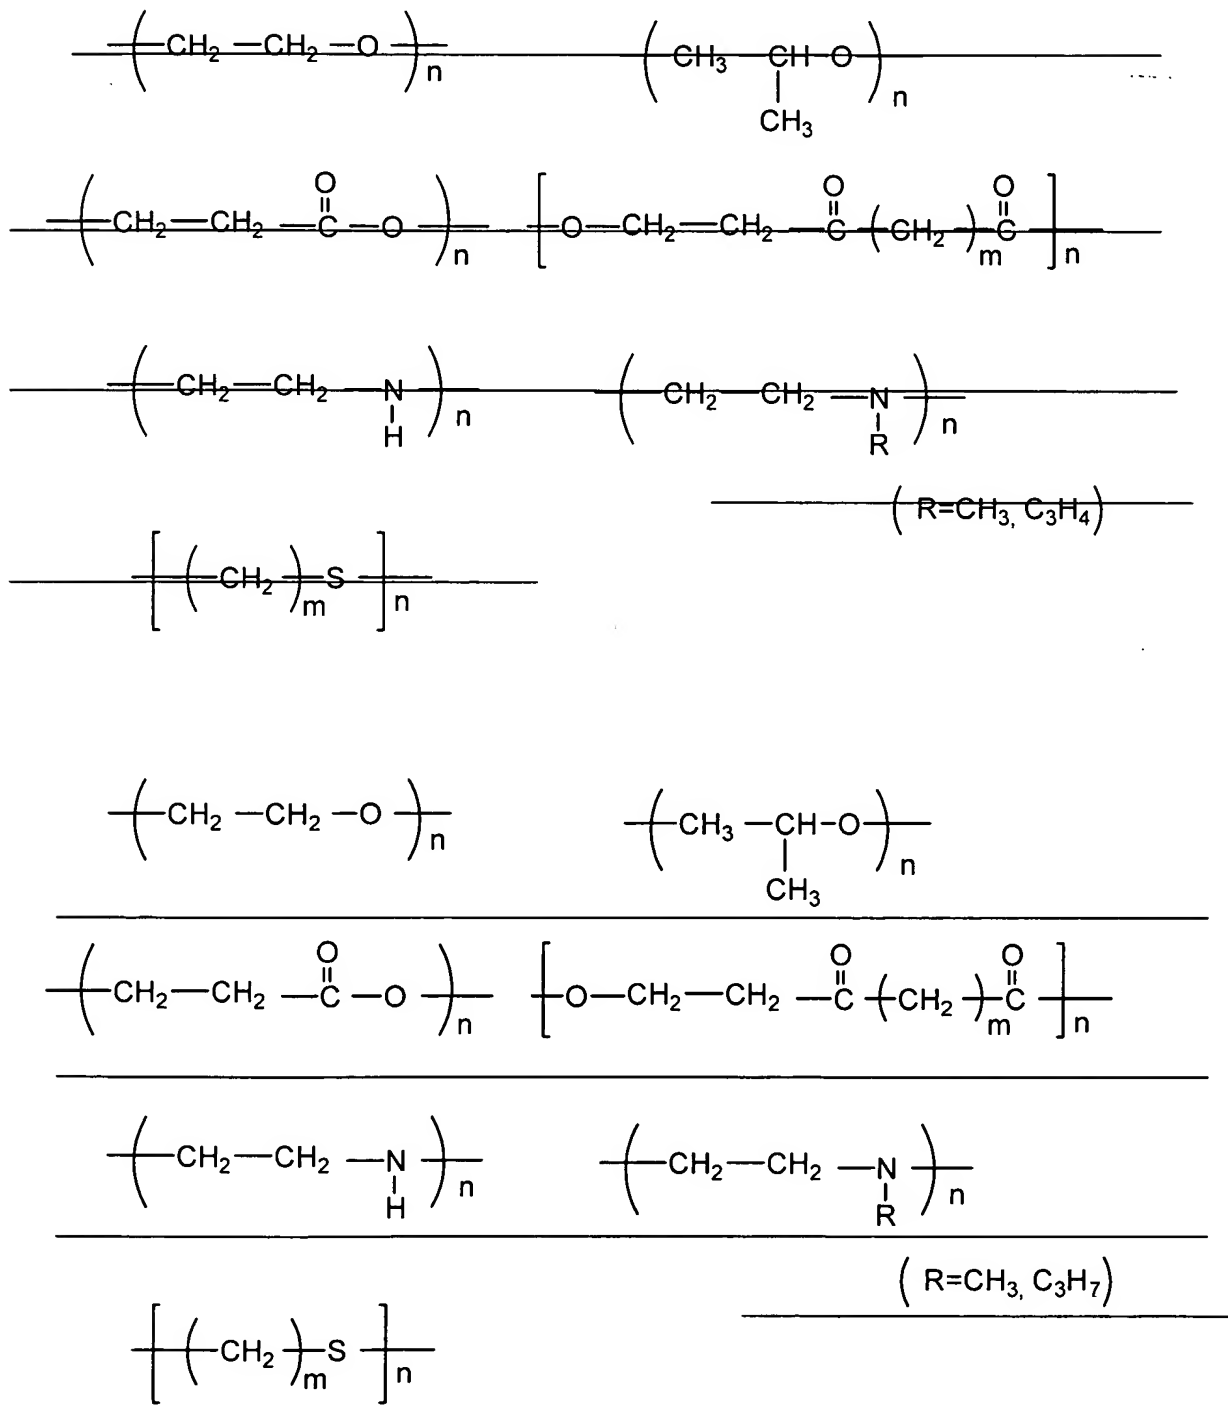 (CH2—CH2—O)n (CH3—CH—O)n
CH3
O O O
(CH2—CH2—C—O)n [O—CH2—CH2—C(CH2)mC]n
(CH2—CH2—N)n (CH2—CH2—N)n
H R
(R=CH3, C3H4)
[(CH2)mS]n
(CH2—CH2—O)n (CH3—CH—O)n
CH3
O O O
(CH2—CH2—C—O)n [O—CH2—CH2—C(CH2)mC]n
(CH2—CH2—N)n (CH2—CH2—N)n
H R
(R=CH3, C3H7)
[(CH2)mS]n